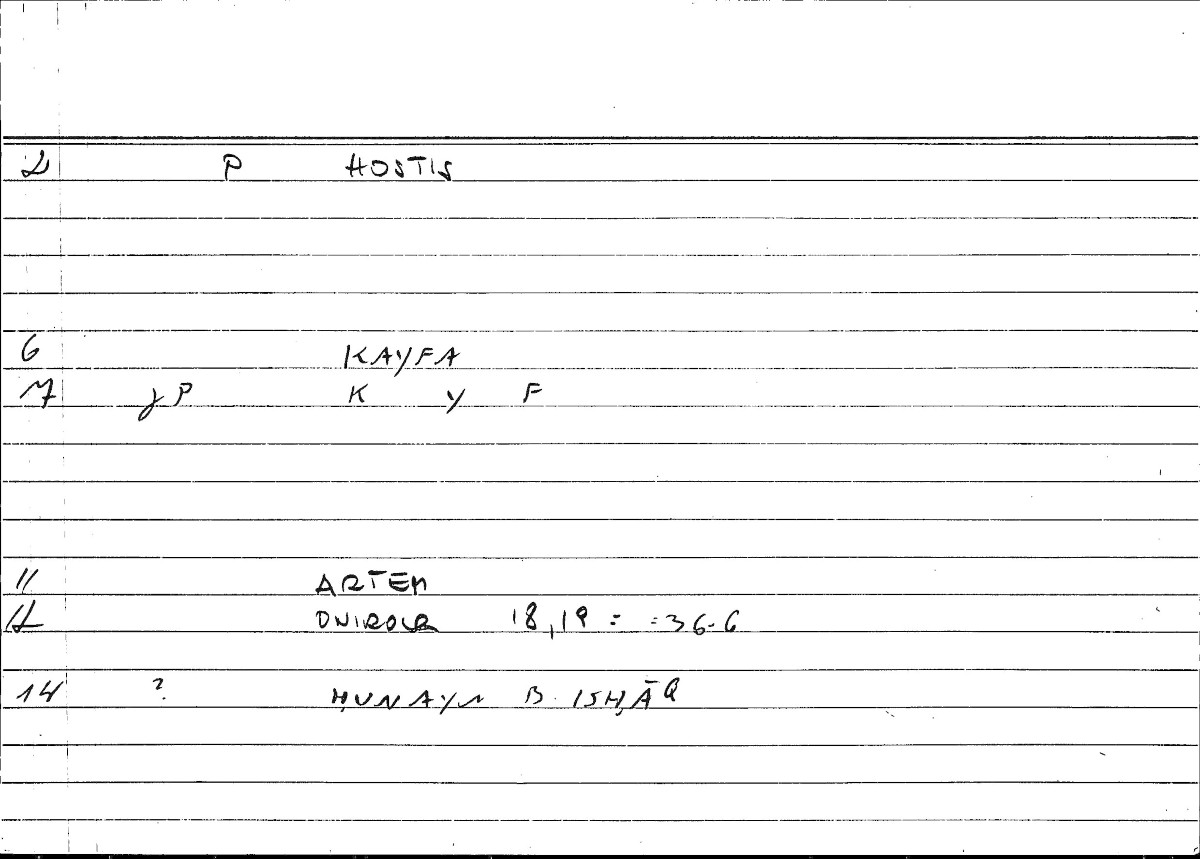 2 P HOSTIS
6 KAYFA
7 γ P K Y F
11 ARTEM
12 ONIROCR 18,19 = =36-6
14 ? ḤUNAYN B. ISḤĀQ